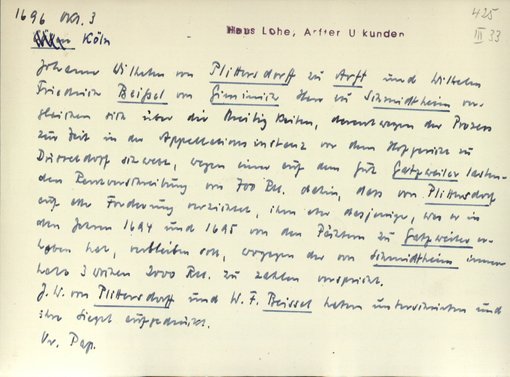 1696 Okt. 3
Haus Lohe, Arffer Urkunden
425
III 33
Köln
Johann Wilhelm von Plittersdorff zu Arft und Wilhelm
Friedrich Beissel von Gimnich Herr zu Schmidtheim ver-
gleichen sich über die Streitigkeiten, derentwegen der Prozess
zur Zeit in der Appellationsinstanz vor dem Hofgericht zu
Düsseldorf schwebt, wegen einer auf dem Gut Gatzweiler lasten-
den Rentverschreibung von 700 Rt. dahin, dass von Plittersdorf
auf alle Forderung verzichtet, ihm aber dasjenige, was er in
den Jahren 1694 und 1695 von den Pächtern zu Gatzweiler er-
hoben hat, verbleiben soll, wogegen der von Schmidtheim inner-
halb 3 Wochen 2000 Rt. zu zahlen verspricht.
J. W. von Plittersdorff und W. F. Beissel haben unterschrieben und
ihre Siegel aufgedrückt.
Or. Pap.